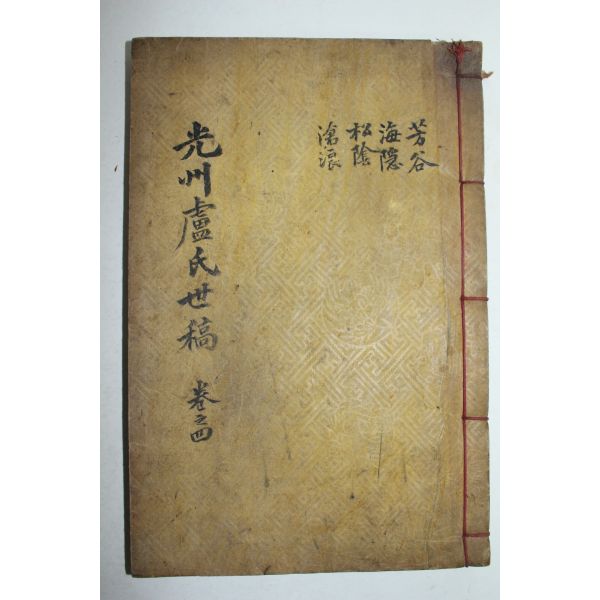 光州盧氏世稿 卷之四
芳谷
海隠
松陰
滄浪